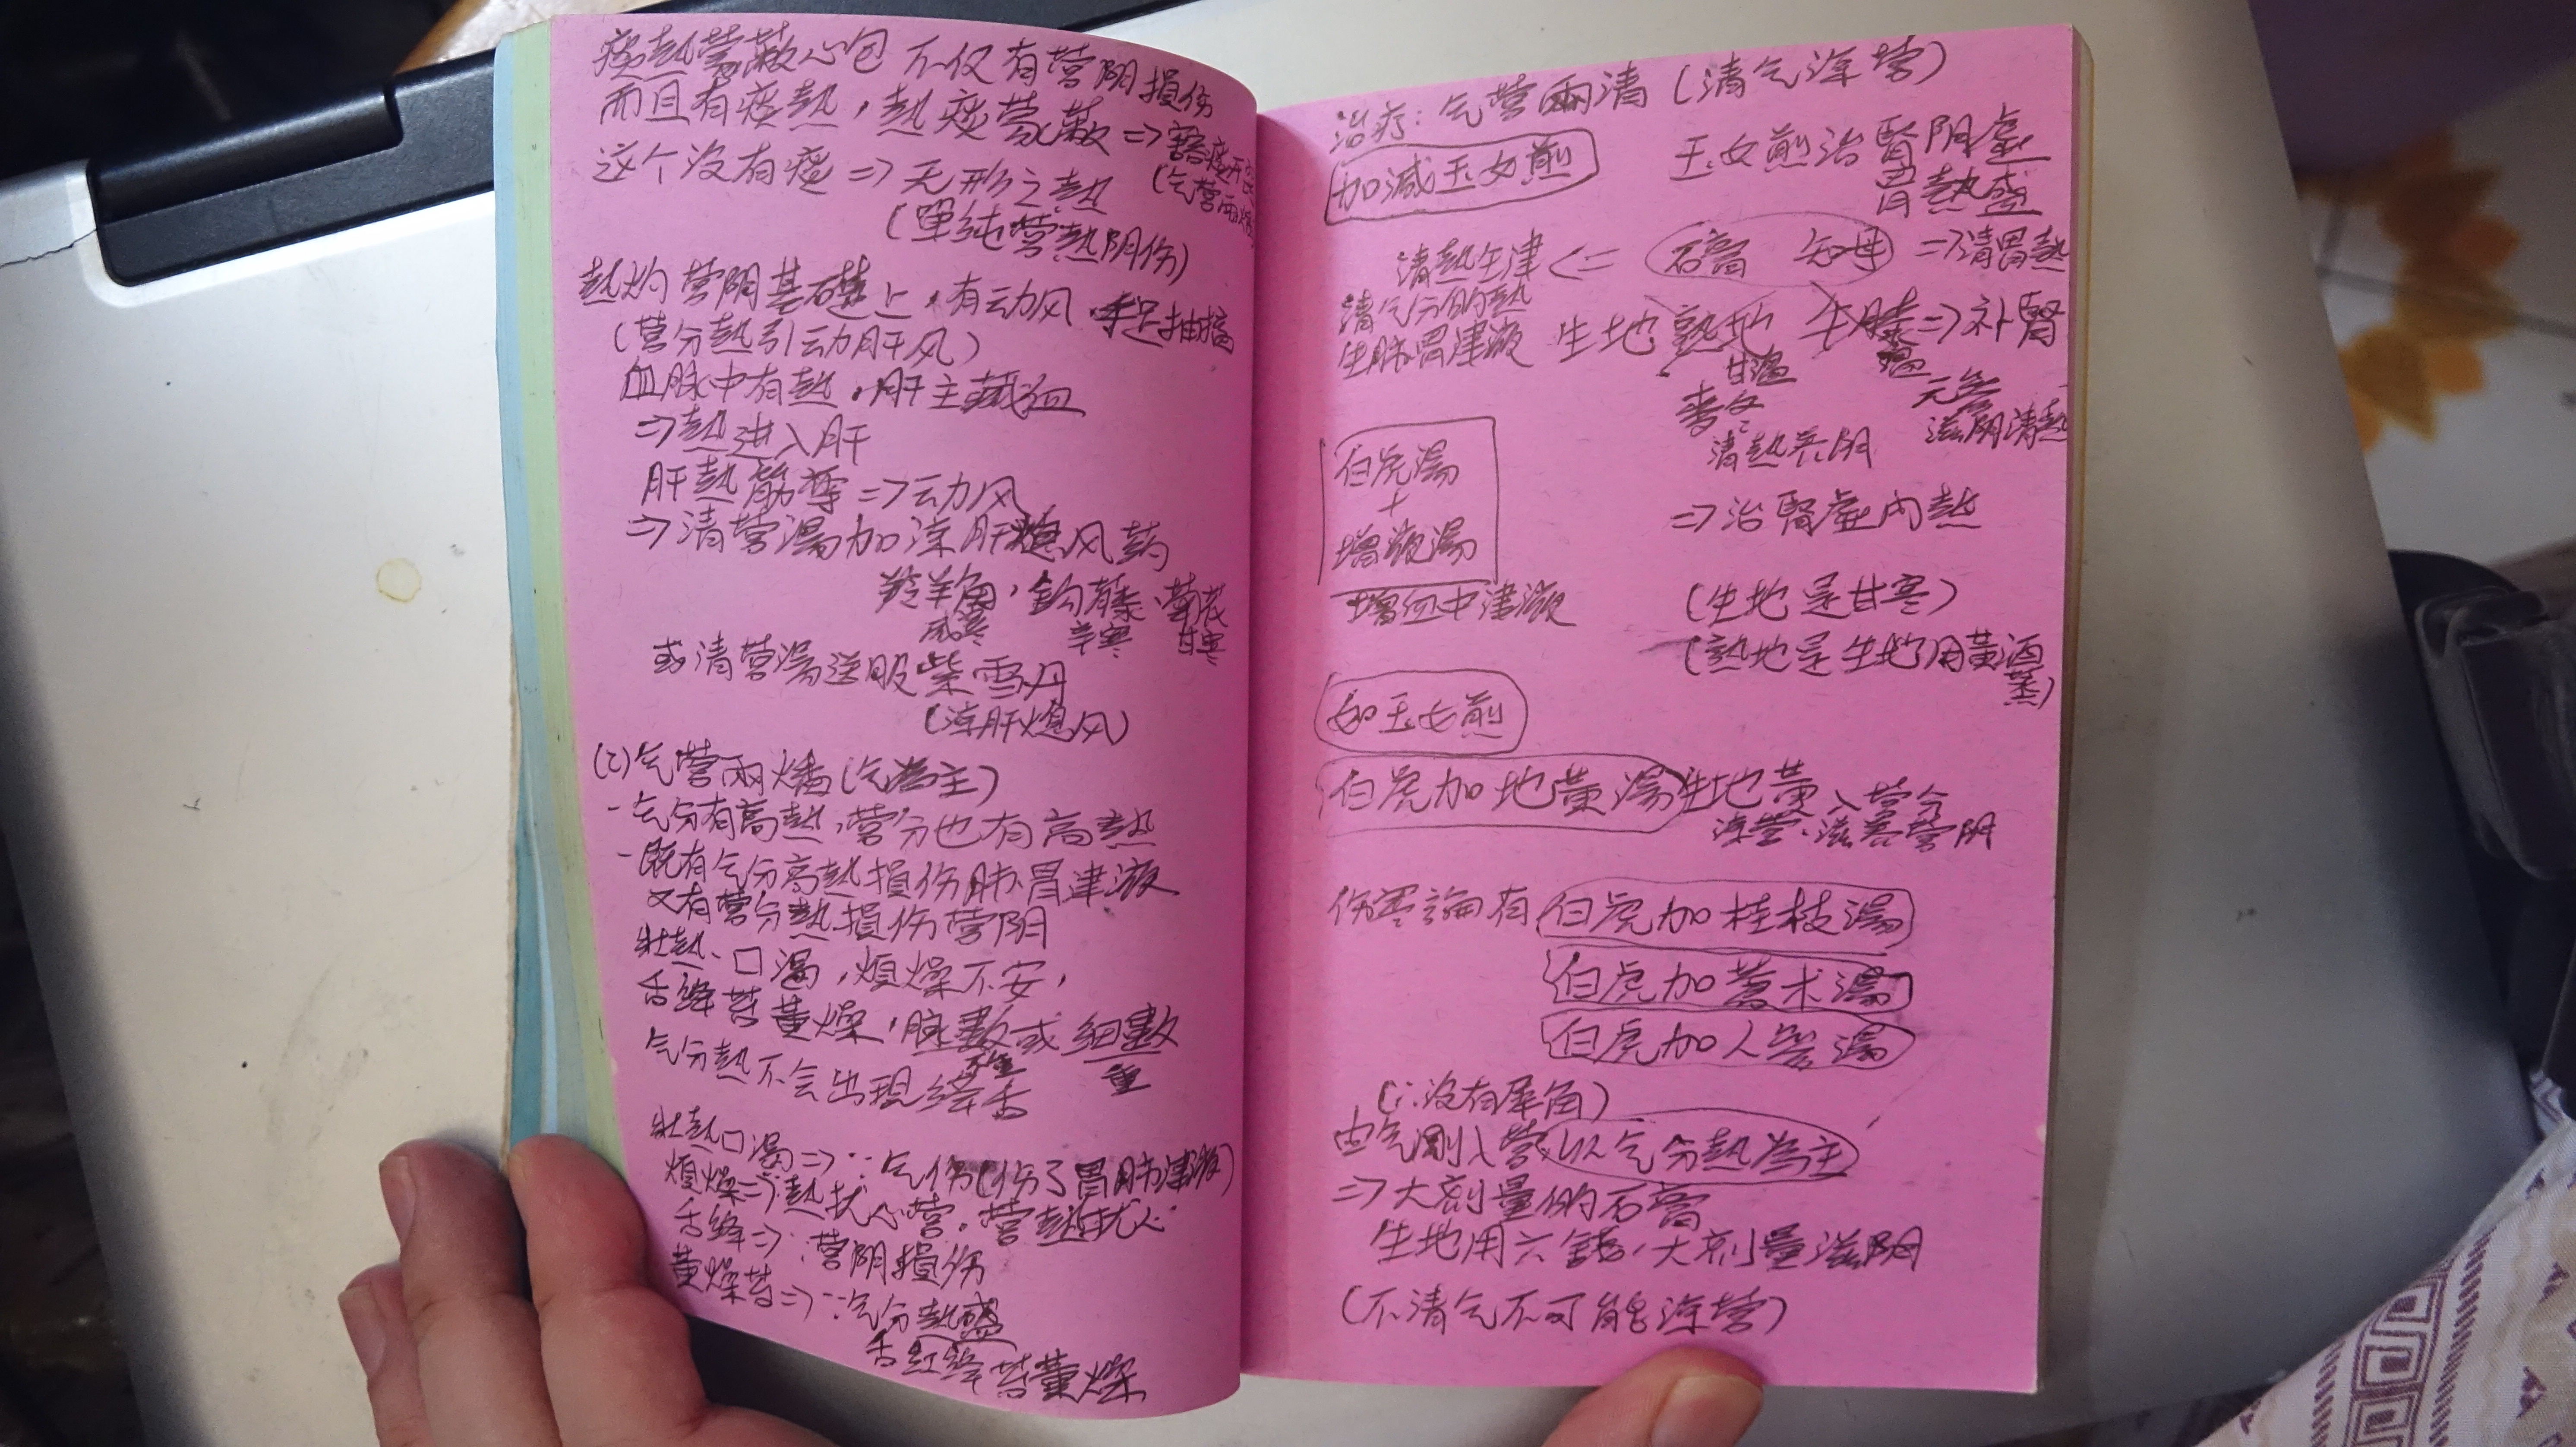 痰热蒙蔽心包 不仅有营阴損伤
而且有痰热，热痰蒙蔽 =>
这个没有痰 => 无形之热 (气营兩燔)
(單纯营热阴伤)
热灼营阴基礎上，有动风、手足抽搐
(营分热引动肝风)
血脉中有热，肝主藏血
=> 热进入肝
肝热筋攣 => 动风
=> 清营湯加涼肝熄风药
羚羊角，鈎藤、菊花
咸寒 辛寒 甘寒
或清营湯送服紫雪丹
(涼肝熄风)
(2) 气营兩燔 (气為主)
- 气分有高热，营分也有高热
- 既有气分高热損伤肺胃津液
又有营分热損伤营阴
壮热、口渴，煩燥不安，
舌絳苔黃燥，脉數或細數
气分热不会出現絳舌 重
壮热口渴 => ∵气伤(伤了胃肺津液)
煩燥 => 热扰心营，营热扰心
舌絳 => ∵营阴損伤
黃燥苔 => ∵气分热盛
舌紅絳苔黃燥
治疗：气营兩清 (清气涼营)
加減玉女煎 玉女煎治腎阴虛
胃热盛
清热生津 <= 石膏 知母 => 清胃热
清气分的热
生肺胃津液 生地 熟地 牛膝 => 补腎
甘温 温
麦冬 元参
清热养阴 滋阴清热
白虎湯
+
增液湯
增血中津液
=> 治腎虛內热
(生地是甘寒)
(熟地是生地用黃酒
蒸)
如玉女煎
白虎加地黃湯 生地黃入营分
涼营、滋养营阴
伤寒論有 白虎加桂枝湯
白虎加蒼术湯
白虎加人参湯
(∵没有犀角)
由气剛入营，以气分热為主
=> 大剂量的石膏
生地用六錢，大剂量滋阴
(不清气不可能涼营)